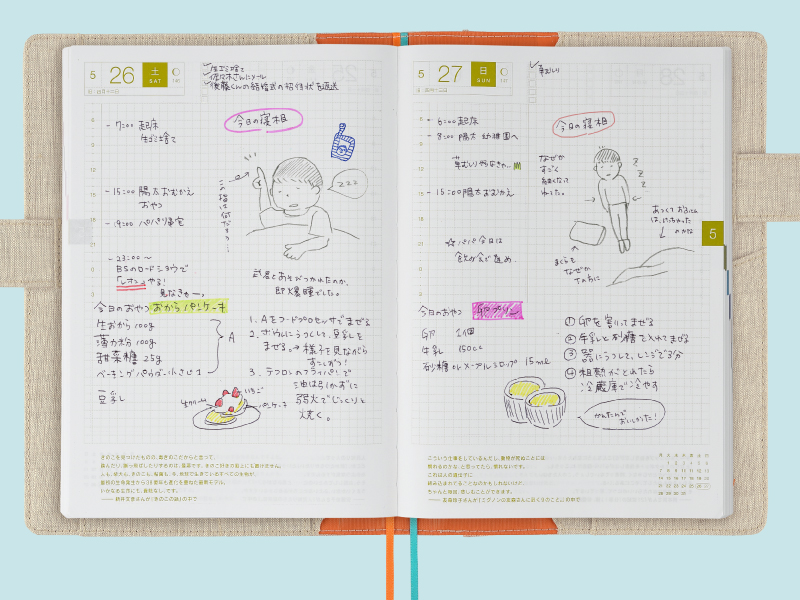 5 26 土
SAT
生ゴミ捨て
佐々木さんにメール
後藤くんの結婚式の招待状を返送
今日の寝相
7:00 起床
生ゴミ捨て
15:00 陽太おむかえ
おやつ
19:00 パパ帰宅
23:00〜
BSのロードショウで
「レオン」やる!
見なきゃー。
この指は何だろう…
ZZZ
武君とあそびつかれたのか、
即爆睡でした。
今日のおやつ おからパンケーキ
生おから 100g
薄力粉 100g
甜菜糖 25g
ベーキングパウダー 小さじ1
A
豆乳
1. Aをフードプロセッサでまぜる
2. ボウルにうつして、豆乳を
まぜる。→様子を見ながら
すこしずつ!
3. テフロンのフライパンで
油は引かずに
弱火でじっくりと
焼く。
生クリーム
いちご
パンケーキ
きのこを見つけたものの、
5 27 日
SUN
草むしり
今日の寝相
6:00 起床
8:00 陽太 幼稚園へ
草むしりやらなきゃ…
15:00 陽太おむかえ
☆パパ今日は
飲み会で遅め
なぜか
すごく
細くなって
ねてた。
Z
Z
Z
あつくておふとん
はいじゃった
のかな
まくらを
なぜか
下の方に
今日のおやつ 卵プリン
卵 1個
牛乳 150cc
砂糖 or メープルシロップ 15ml
① 卵を割ってまぜる
② 牛乳と砂糖を入れてまぜる
③ 器にうつして、レンジで3分
④ 粗熱がとれたら
冷蔵庫で冷やす
かんたんで
おいしかった!
こういう仕事をしているんだし、動物が死ぬことには
慣れるのかな、と思ってたら、慣れないです。
5